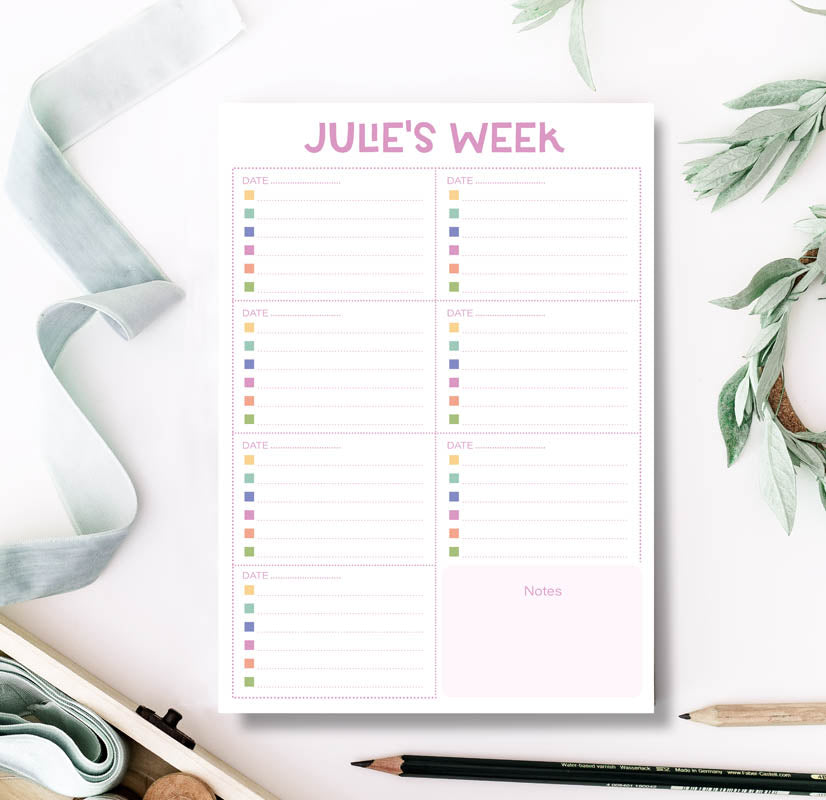 JULIE'S WEEK
DATE ........................ DATE ........................
DATE ........................ DATE ........................
DATE ........................ DATE ........................
DATE ........................
Notes
Water-based varnish Wasserlack SV Made in Germany www.Faber-Castell.com